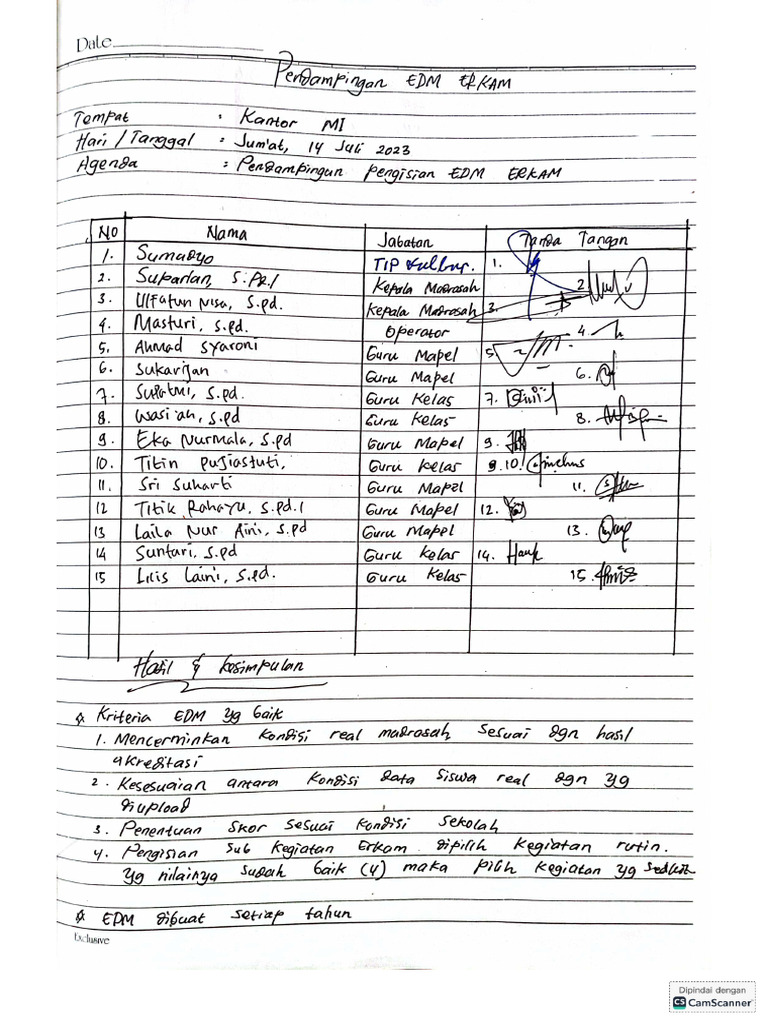 Date
Pendampingan EDM ERKAM
Tempat : Kantor MI
Hari / Tanggal : Jum'at, 14 Juli 2023
Agenda : Pendampingan pengisian EDM ERKAM
No Nama Jabatan Tanda Tangan
1. Sumadyo 1.
2. Suparlan, S.Pd.I Kepala Madrasah 2.
3. Ulfatun Nisa, S.pd. Kepala Madrasah 3.
4. Masturi, S.pd. Operator 4.
5. Ahmad Syaroni Guru Mapel 5.
6. Sukarijan Guru Mapel 6.
7. Supatmi, S.pd. Guru Kelas 7.
8. Wasi'ah, S.pd Guru Kelas 8.
9. Eka Nurmala, S.pd Guru Mapel 9.
10. Titin Pujiastuti, Guru Kelas 9.10.
11. Sri Suharti Guru Mapel 11.
12 Titik Rahayu, S.pd.I Guru Mapel 12.
13 Laila Nur Aini, S.pd Guru Mapel 13.
14 Suntari, S.pd Guru Kelas 14.
15 Lilis Laini, S.pd. Guru Kelas 15.
Hasil & kesimpulan
Kriteria EDM yg baik
1. Mencerminkan kondisi real madrasah sesuai dgn hasil
akreditasi
2. Kesesuaian antara kondisi data siswa real dgn yg
diupload
3. Penentuan skor sesuai kondisi sekolah
4. Pengisian sub kegiatan Erkam dipilih kegiatan rutin.
yg nilainya sudah baik (4) maka pilih kegiatan yg
EDM dibuat setiap tahun
Exclusive
Dipindai dengan
CS CamScanner